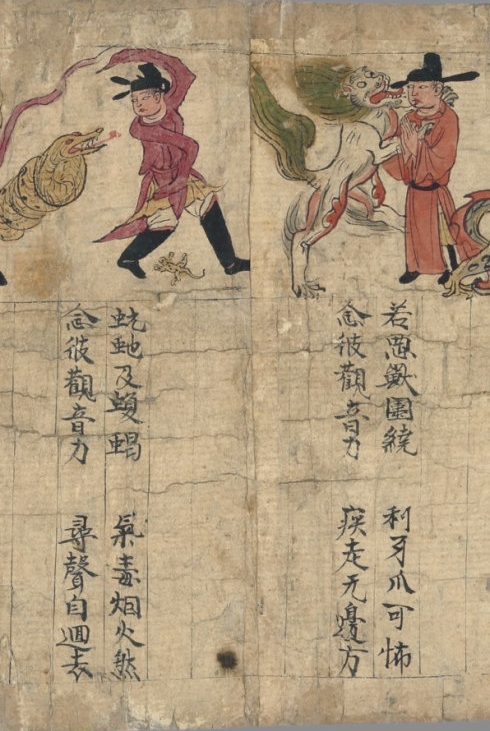 若惡獸圍繞 利牙爪可怖
念彼觀音力 疾走无邊方
蚖虵及蝮蝎 氣毒烟火然
念彼觀音力 尋聲自迴去